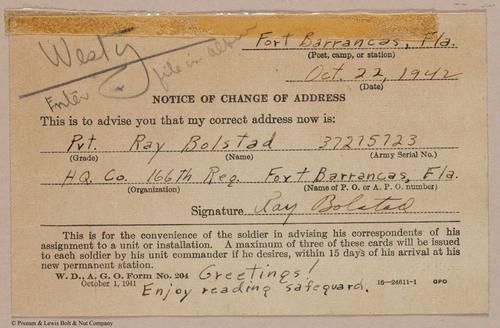 Westy
Enter or file in album
Fort Barrancas, Fla.
(Post, camp, or station)
Oct. 22, 1942
(Date)
NOTICE OF CHANGE OF ADDRESS
This is to advise you that my correct address now is:
Pvt. Ray Bolstad 37275723
(Grade) (Name) (Army Serial No.)
HQ Co. 166th Reg. Fort Barrancas, Fla.
(Organization) (Name of P. O. or A. P. O. number)
Signature Ray Bolstad
This is for the convenience of the soldier in advising his correspondents of his
assignment to a unit or installation. A maximum of three of these cards will be issued
to each soldier by his unit commander if he desires, within 15 days of his arrival at his
new permanent station.
W. D., A. G. O. Form No. 204
October 1, 1941
Greetings!
Enjoy reading safeguard.
16—24611-1 GPO
© Pioneum & Lewis Bolt & Nut Company